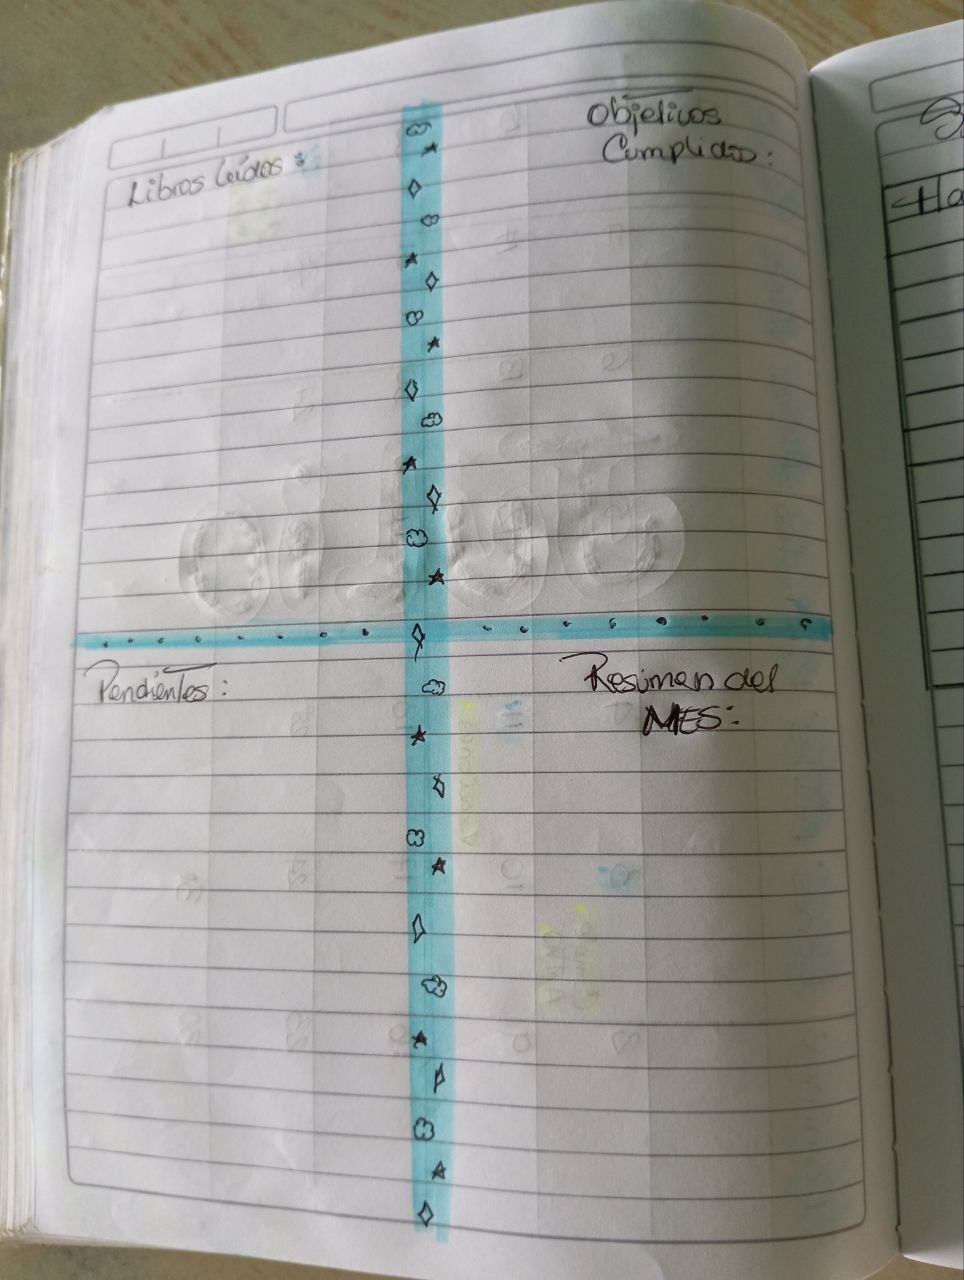 Libros leídos:
Objetivos
Cumplidos:
Pendientes:
Resumen del
MES: